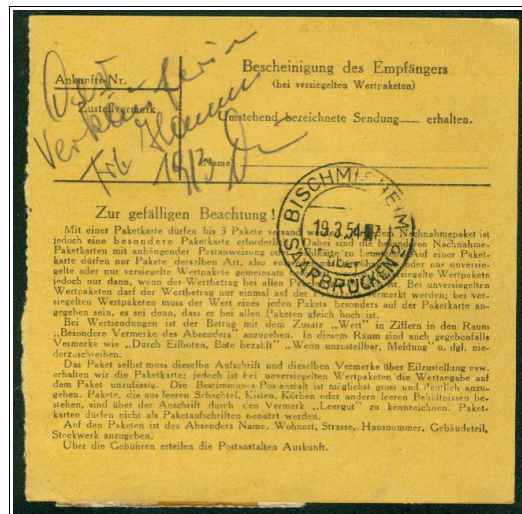 Ankunfts-Nr.
Zustellvermerk
Frl.
19/3
Bescheinigung des Empfängers
(bei versiegelten Wertpaketen)
Umstehend bezeichnete Sendung...... erhalten.
(Name)
BISCHMISHEIM
19.3.54
über
SAARBRÜCKEN 2
Zur gefälligen Beachtung!
Mit einer Paketkarte dürfen bis 3 Pakete versandt werden. Zu jeden Nachnahmepaket ist
jedoch eine besondere Paketkarte erforderlich. Dabei sind die besonderen Nachnahme-
Paketkarten mit anhängender Postanweisung oder Zahlkarte zu benutzen. Auf einer Paket-
karte dürfen nur Pakete derselben Art, also entweder oder nur unversie-
gelte oder nur versiegelte Wertpakete gemeinsam versiegelte Wertpakete
jedoch nur dann, wenn der Wertbetrag bei allen Paketen ist. Bei unversiegelten
Wertpaketen darf der Wertbetrag nur einmal auf der vermerkt werden; bei ver-
siegelten Wertpaketen muss der Wert eines jeden Pakets besonders auf der Paketkarte an-
gegeben sein, es sei denn, dass er bei allen Paketen gleich hoch ist.
Bei Wertsendungen ist der Betrag mit dem Zusatz „Wert" in Ziffern in den Raum
„Besondere Vermerke des Absenders" anzugeben. In diesem Raum sind auch gegebenfalls
Vermerke wie „Durch Eilboten, Bote bezahlt" „Wenn unzustellbar, Meldung" u. dgl. nie-
derzuschreiben.
Das Paket selbst muss dieselbe Aufschrift und dieselben Vermerke über Eilzustellung usw.
erhalten wie die Paketkarte; jedoch ist bei unversiegelten Wertpaketen die Wertangabe auf
dem Paket unzulässig. Die Bestimmungs-Postanstalt ist möglichst gross und deutlich anzu-
geben. Pakete, die aus leeren Schachteln, Kisten, Körben oder andern leeren Behältnissen be-
stehen, sind über der Anschrift durch den Vermerk „Leergut" zu kennzeichnen. Paket-
karten dürfen nicht als Paketaufschriften benutzt werden.
Auf den Paketen ist des Absenders Name, Wohnort, Strasse, Hausnummer, Gebäudeteil,
Stockwerk anzugeben.
Über die Gebühren erteilen die Postanstalten Auskunft.